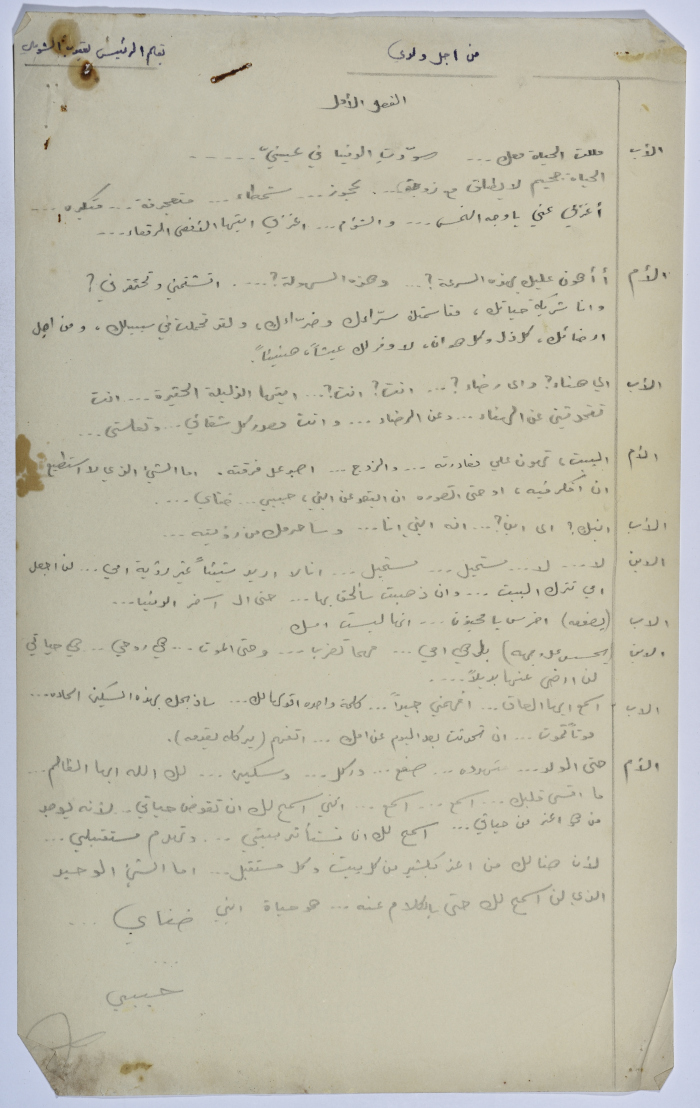 من اجل ولدي
بقلم الرئيس يعقوب
الفصل الأول
الأب مللت الحياة معك ... سوّدتِ الدنيا في عينيّ .....
الحياة جحيم لا يطاق مع زوجة ... عجوز ... شمطاء ... متعجرفة ... متكبره ...
أغربي عني يا وجه النحس ... والشؤم ... اغربي ايتها الأفعى الرقطاء ...
الأم أأهون عليك بهذه السرعة؟ ... وهذه السهولة؟ .... اتشتمني وتحتقرني؟
وانا شريكة حياتك، قاسمتك سرّاءك وضرّاءك، ولقد تحملت في سبيلك، ومن اجل
ارضائك، كل ذل وكل هوان، لاوفر لك عيشاً هنيئاً.
الأب اي هناء؟ واي رضاء؟ ... انت؟ انت؟ ... ايتها الذليلة الحقيرة ... انت
تحدثيني عن الهناء ... وعن الرضاء ... وانت مصدر كل شقائي ... وتعاستي ...
الأم البيت، يهون علي مغادرته ... والزوج ... اصبر على فرقته. اما الشيء الذي لا استطيع
ان افكر فيه، او حتى اتصوره ان ابتعد عن ابني، حبيبي ... ضناي ....
الأب ابنك؟ اي ابن؟ ... انه ابني انا ... وساحرمك من رؤيته ...
الابن لا ... لا ... مستحيل ... مستحيل ... انا لا اريد شيئاً غير رؤية امي ... لن اجعل
امي تترك البيت ... وان ذهبت سألحق بها ... حتى الى آخر الدنيا ...
الاب (يصفعه) اخرس يا مجنون ... انها ليست امك
الابن (يتحسس على وجهه) بلى هي امي ... مهما تضربنا ... وحتى الموت ... هي روحي ... هي حياتي
لن ارضى عنها بديلاً ....
الاب اسمع ايها العاق ... افهمني جيداً ... كلمة واحده اقولها لك ... ساذبحك بهذه السكين الحاده ...
ان تحدثت بعد اليوم عن امك ... اتفهم (يركله بقدمه).
الأم حتى الولد ... صفع ... وركل ... وسكين ... لك الله ايها الظالم ...
ما اقسى قلبك ... اسمع ... اسمع ... انني اسمح لك ان تقوض حياتي. لأنه يوجد
من هو اعز من حياتي ... اسمح لك ان ... بيتي ... وتهدم مستقبلي ...
لأن هنالك من اعز بكثير من كل بيت وكل مستقبل ... اما الشيء الوحيد
الذي لن اسمح لك حتى بالكلام عنه ... هو حياة ابني ضناي ...
...
حبيبي